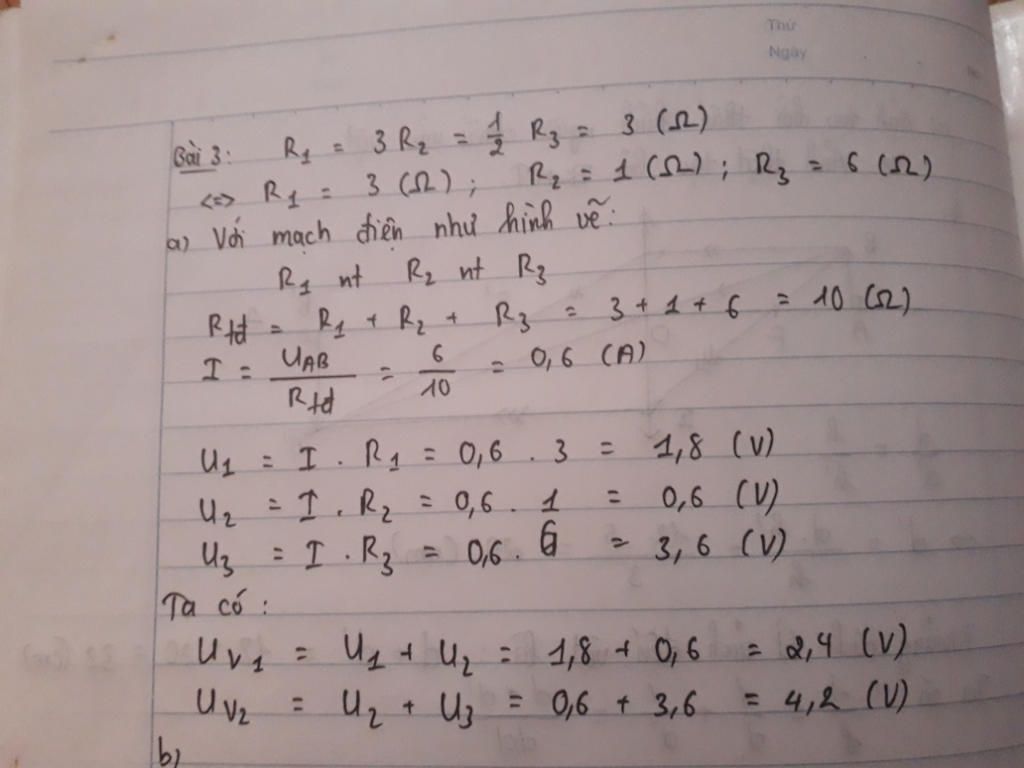 Thứ
Ngày
Bài 3: R₁ = 3 R₂ = 1/2 R₃ = 3 (Ω)
<=> R₁ = 3 (Ω) ; R₂ = 1 (Ω) ; R₃ = 6 (Ω)
a) Với mạch điện như hình vẽ:
R₁ nt R₂ nt R₃
Rtđ = R₁ + R₂ + R₃ = 3 + 1 + 6 = 10 (Ω)
I = UAB/Rtđ = 6/10 = 0,6 (A)
U₁ = I . R₁ = 0,6 . 3 = 1,8 (V)
U₂ = I . R₂ = 0,6 . 1 = 0,6 (V)
U₃ = I . R₃ = 0,6 . 6 = 3,6 (V)
Ta có :
Uv₁ = U₁ + U₂ = 1,8 + 0,6 = 2,4 (V)
Uv₂ = U₂ + U₃ = 0,6 + 3,6 = 4,2 (V)
b)